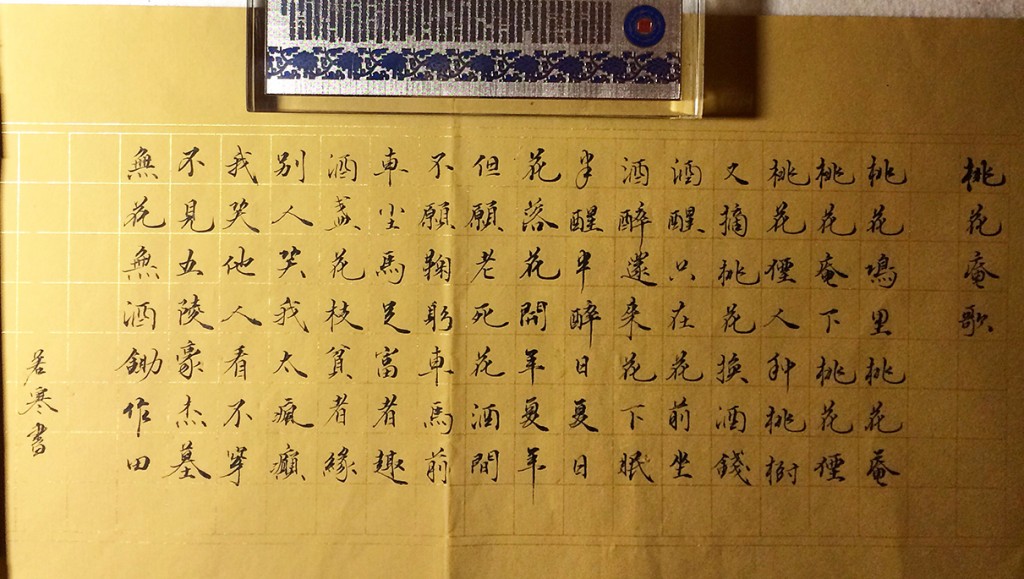 桃花庵歌
桃花塢里桃花菴
桃花庵下桃花僊
桃花僊人种桃樹
又摘桃花换酒錢
酒醒只在花前坐
酒醉還来花下眠
半醒半醉日复日
花落花開年复年
但願老死花酒間
不願鞠躬車馬前
車尘馬足富者趣
酒盞花枝貧者緣
别人笑我太瘋癲
我笑他人看不穿
不見五陵豪杰墓
無花無酒鋤作田
若寒書